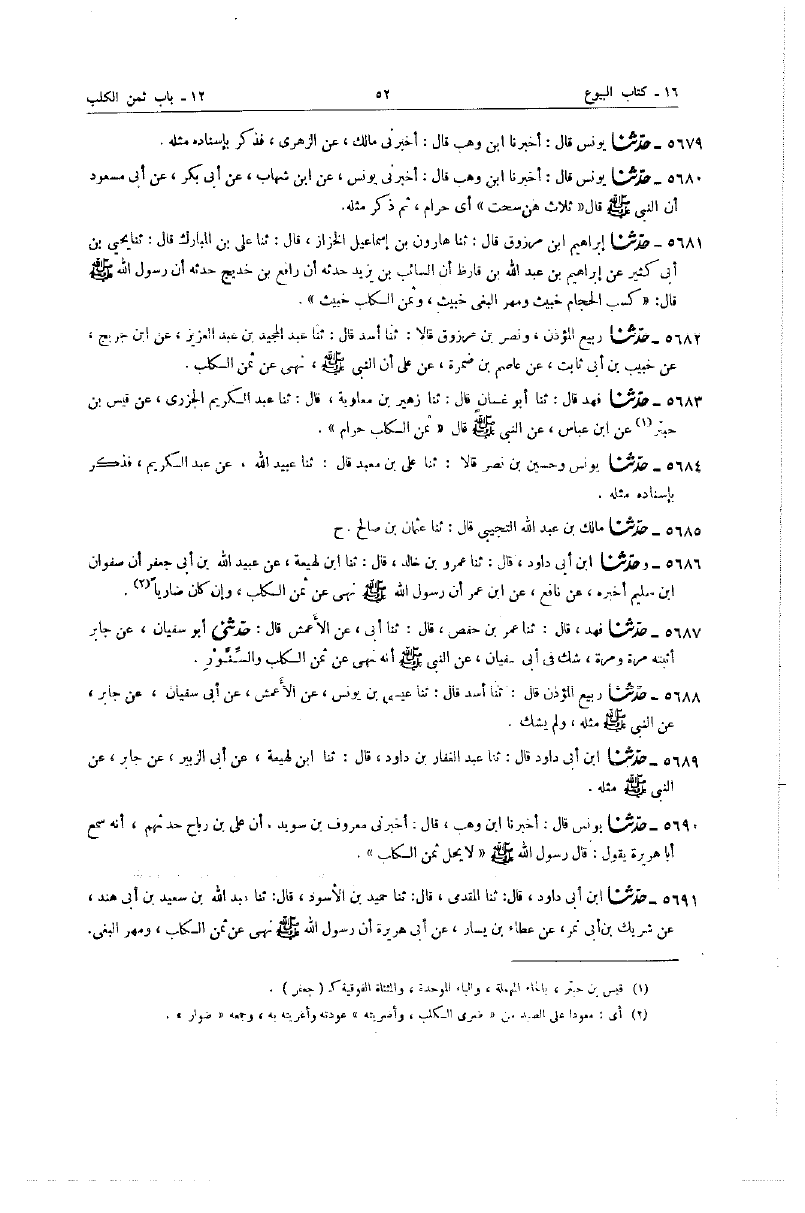 ١٦ - كتاب البيوع ٥٢ ١٢ - باب ثمن الكلب
٥٦٧٩ - حدثنا يونس قال : أخبرنا ابن وهب قال : أخبرنى مالك ، عن الزهرى ، فذكر بإسناده مثله .
٥٦٨٠ - حدثنا يونس قال : أخبرنا ابن وهب قال : أخبرنى يونس ، عن ابن شهاب ، عن أبى بكر ، عن أبى مسعود
أن النبى ﷺ قال « ثلاث هن سحت » أى حرام ، ثم ذكر مثله.
٥٦٨١ - حدثنا إبراهيم ابن مرزوق قال : ثنا هارون بن إسماعيل الخزاز ، قال : ثنا على بن المبارك قال : ثنا يحيى بن
أبى كثير عن إبراهيم بن عبد الله بن قارظ أن السائب بن يزيد حدثه أن رافع بن خديج حدثه أن رسول الله ﷺ
قال: « كسب الحجام خبيث ومهر البغى خبيث ، وثمن الكلب خبيث » .
٥٦٨٢ - حدثنا ربيع المؤذن ، ونصر بن مرزوق قالا : ثنا أسد قال : ثنا عبد المجيد بن عبد العزيز ، عن ابن جريج ،
عن حبيب بن أبى ثابت ، عن عاصم بن ضمرة ، عن على أن النبى ﷺ ، نهى عن ثمن الكلب .
٥٦٨٣ - حدثنا فهد قال : ثنا أبو غسان قال : ثنا زهير بن معاوية ، قال : ثنا عبد الكريم الجزرى ، عن قيس بن
حبتر (١) عن ابن عباس ، عن النبى ﷺ قال « ثمن الكلب حرام » .
٥٦٨٤ - حدثنا يونس وحسين بن نصر قالا : ثنا على بن معبد قال : ثنا عبيد الله ، عن عبد الكريم ، فذكر
بإسناده مثله .
٥٦٨٥ - حدثنا مالك بن عبد الله التجيبى قال : ثنا عثمان بن صالح . ح
٥٦٨٦ - وحدثنا ابن أبى داود ، قال : ثنا عمرو بن خالد ، قال : ثنا ابن لهيعة ، عن عبيد الله بن أبى جعفر أن صفوان
ابن سليم أخبره ، عن نافع ، عن ابن عمر أن رسول الله ﷺ نهى عن ثمن الكلب ، وإن كان ضارياً (٢) .
٥٦٨٧ - حدثنا فهد ، قال : ثنا عمر بن حفص ، قال : ثنا أبى ، عن الأعمش قال : حدثنى أبو سفيان ، عن جابر
أثبته مرة ومرة ، شك فى أبى سفيان ، عن النبى ﷺ أنه نهى عن ثمن الكلب والسِّنَّوْرِ .
٥٦٨٨ - حدثنا ربيع المؤذن قال : ثنا أسد قال : ثنا عيسى بن يونس ، عن الأعمش ، عن أبى سفيان ، عن جابر ،
عن النبى ﷺ مثله ، ولم يشك .
٥٦٨٩ - حدثنا ابن أبى داود قال : ثنا عبد الغفار بن داود ، قال : ثنا ابن لهيعة ، عن أبى الزبير ، عن جابر ، عن
النبى ﷺ مثله .
٥٦٩٠ - حدثنا يونس قال : أخبرنا ابن وهب ، قال : أخبرنى معروف بن سويد ، أن على بن رباح حدثهم ، أنه سمع
أبا هريرة يقول : قال رسول الله ﷺ « لا يحل ثمن الكلب » .
٥٦٩١ - حدثنا ابن أبى داود ، قال: ثنا المقدمى ، قال: ثنا حميد بن الأسود ، قال: ثنا عبد الله بن سعيد بن أبى هند ،
عن شريك بن أبى نمر، عن عطاء بن يسار ، عن أبى هريرة أن رسول الله ﷺ نهى عن ثمن الكلب ، ومهر البغى.
(١) قيس بن حبتر ، بالحاء المهملة ، والباء الموحدة ، والمثناة الفوقية كـ ( جعفر ) .
(٢) أى : معودا على الصيد من « ضرى الكلب ، وأضريته » عودته وأغريته به ، وجمعه « ضوار » .